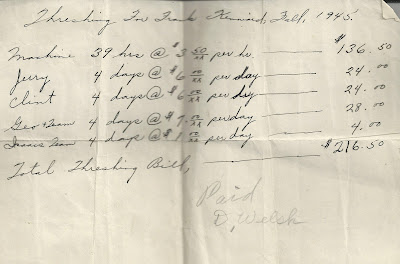 Threshing For Frank Kennard, Fall, 1945.
Machine 39 hrs @ $3 50/xx per hr. $136.50
Jerry 4 days @ $6 00/xx per day 24.00
Clint 4 days @ $6 00/xx per day 24.00
Geo & Team 4 days @ $7 00/xx per day 28.00
Team 4 days @ $1 00/xx per day 4.00
Total Threshing Bill, $216.50
Paid
D. Welch